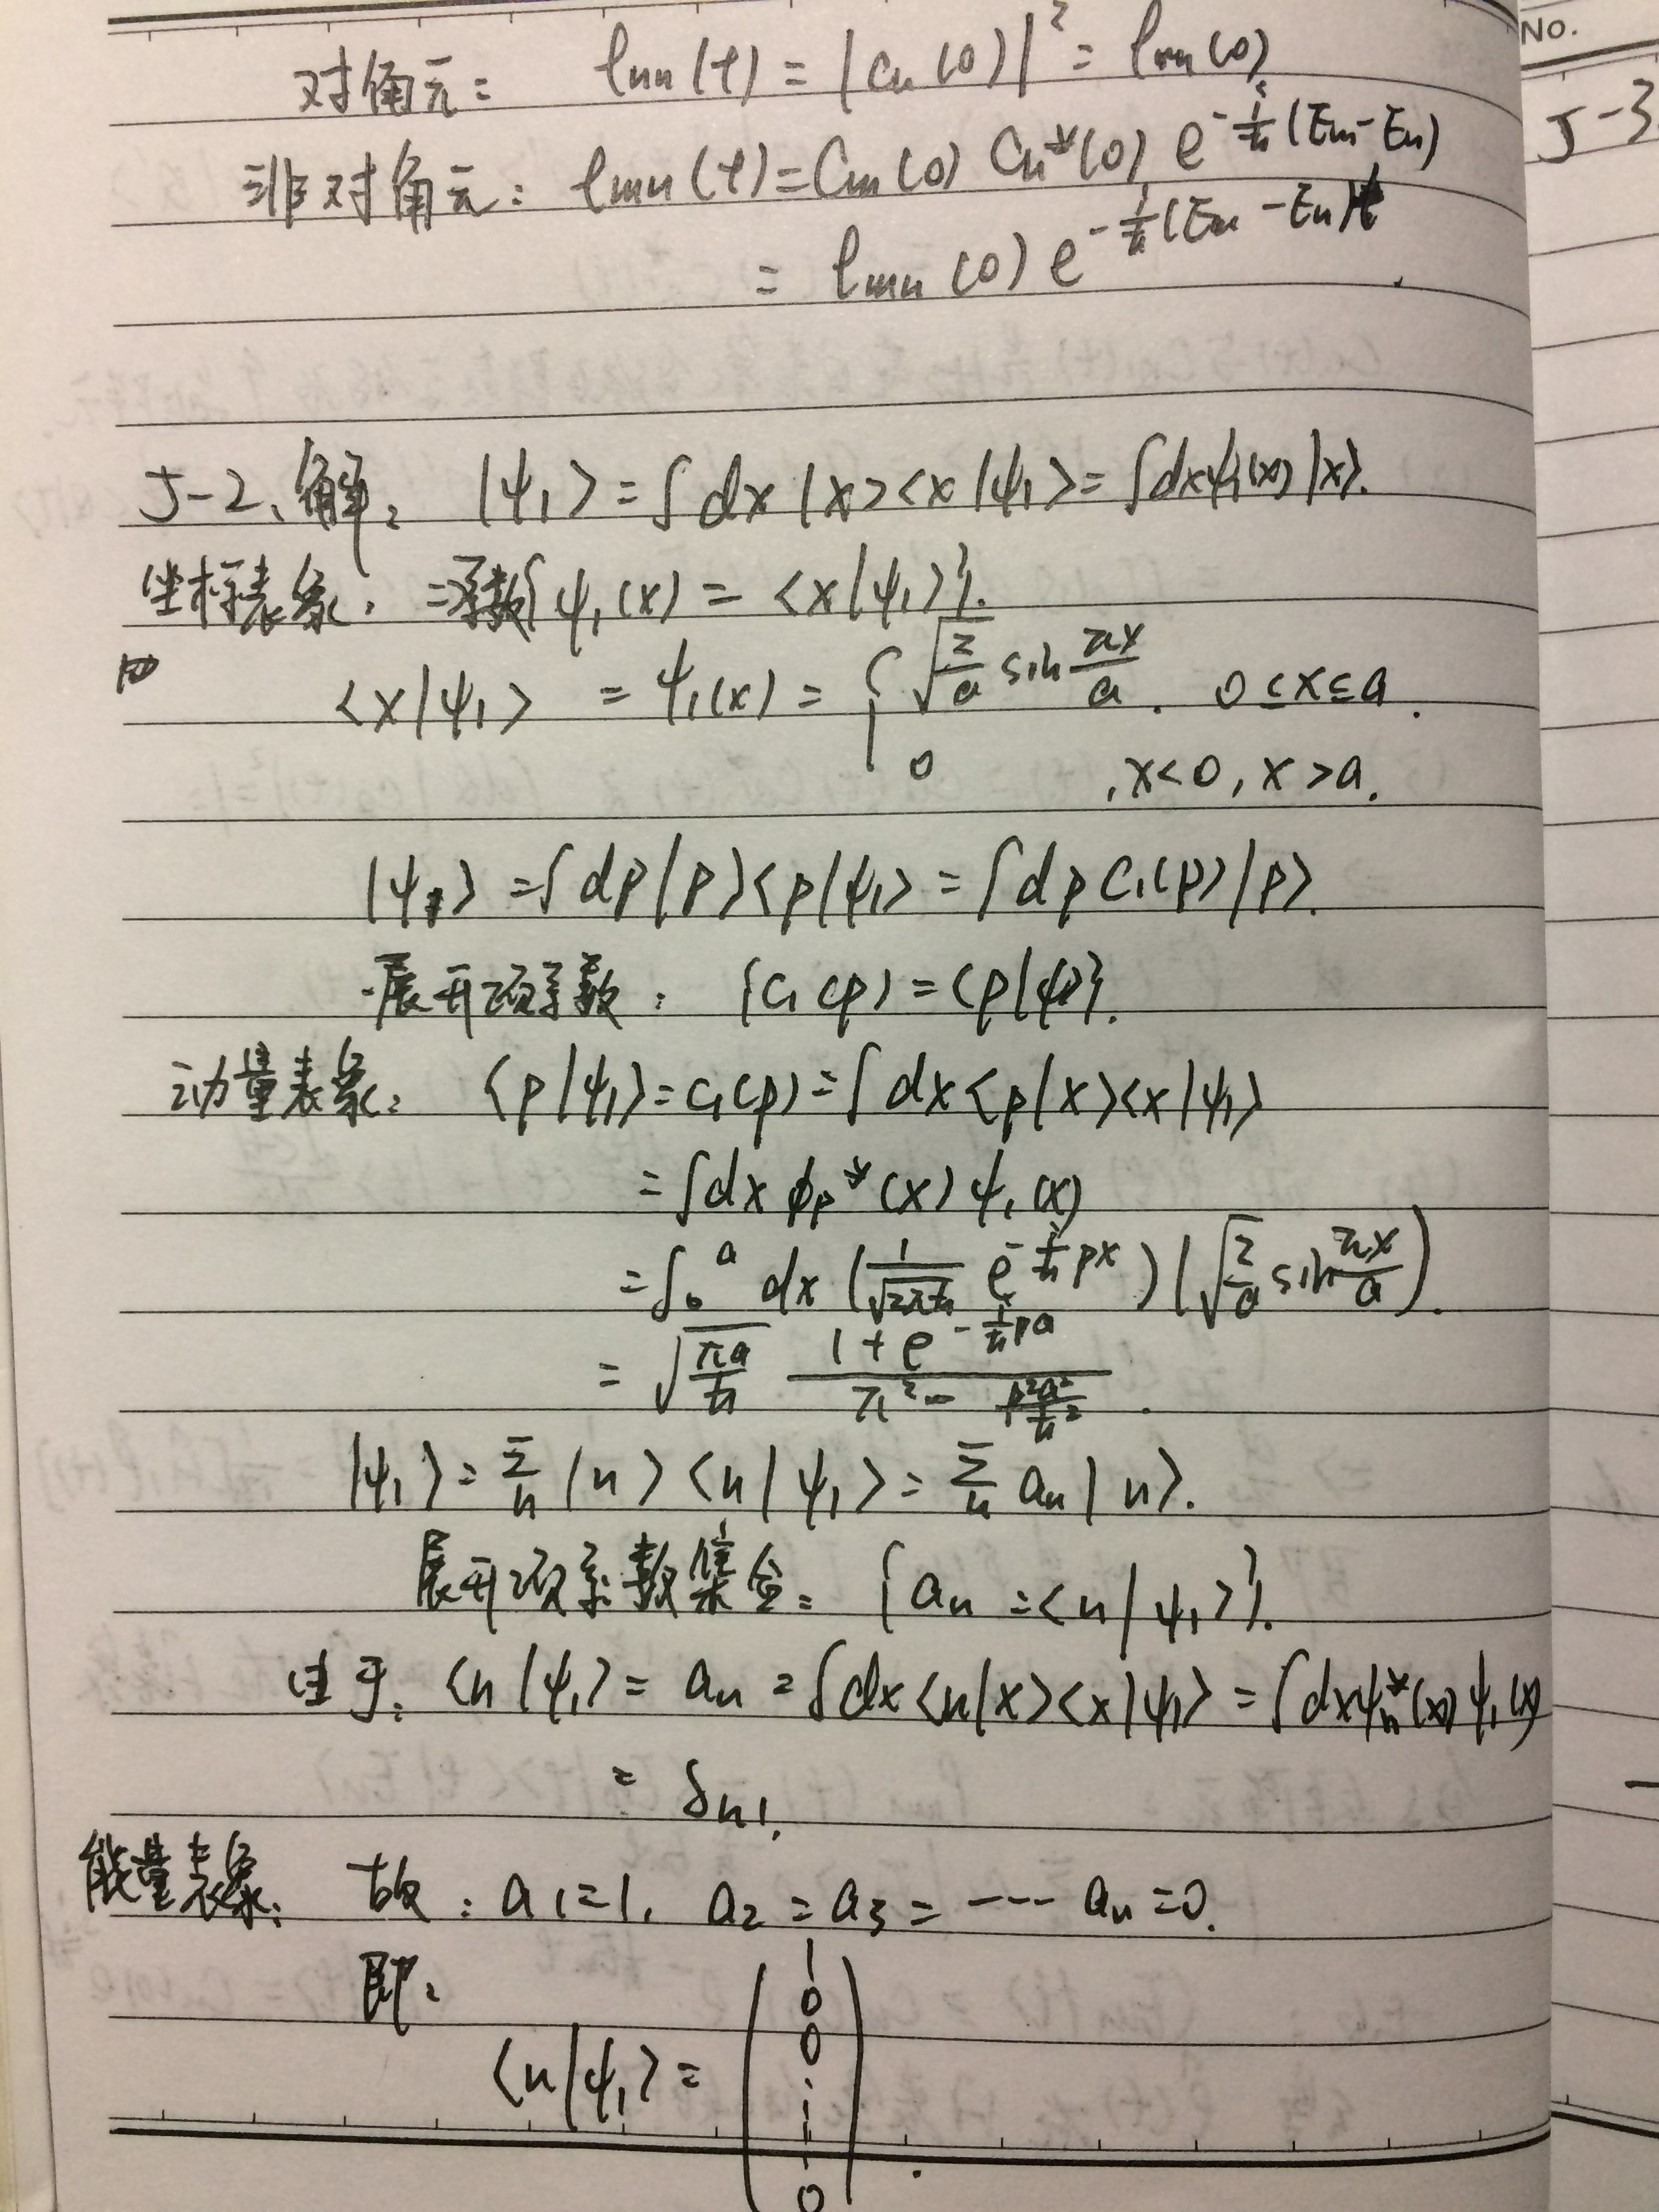 No.
对角元: ρnn(t) = |Cn(0)|² = ρnn(0)
J-3
非对角元: ρmn(t) = Cm(0) Cn*(0) e^{-i/ħ(Em-En)}
= ρmn(0) e^{-i/ħ(Em-En)t}.
J-2、解: |ψ₁> = ∫dx |x><x|ψ₁> = ∫dxψ₁(x)|x>.
坐标表象: 系数{ψ₁(x) = <x|ψ₁>}.
<x|ψ₁> = ψ₁(x) = { √(2/a) sin(πx/a), 0≤x≤a.
0 , x<0, x>a.
|ψ₁> = ∫dp|p><p|ψ₁> = ∫dp C₁(p)|p>.
展开项系数: {C₁(p) = <p|ψ>}.
动量表象: <p|ψ₁> = C₁(p) = ∫dx<p|x><x|ψ₁>
= ∫dx φp*(x) ψ₁(x)
= ∫₀ᵃ dx (1/√(2πħ) e^{-i/ħ px}) (√(2/a) sin(πx/a)).
= √(πa/ħ) (1+e^{-i/ħ pa})/(π² - p²a²/ħ²).
|ψ₁> = Σn |n><n|ψ₁> = Σn an|n>.
展开项系数集合: {an = <n|ψ₁>}.
由于: <n|ψ₁> = an = ∫dx<n|x><x|ψ₁> = ∫dxψn*(x)ψ₁(x)
= δn1.
能量表象: 故: a₁=1, a₂=a₃=---- an=0.
即:
<n|ψ₁> = (1 0 0 ⋮ 0).